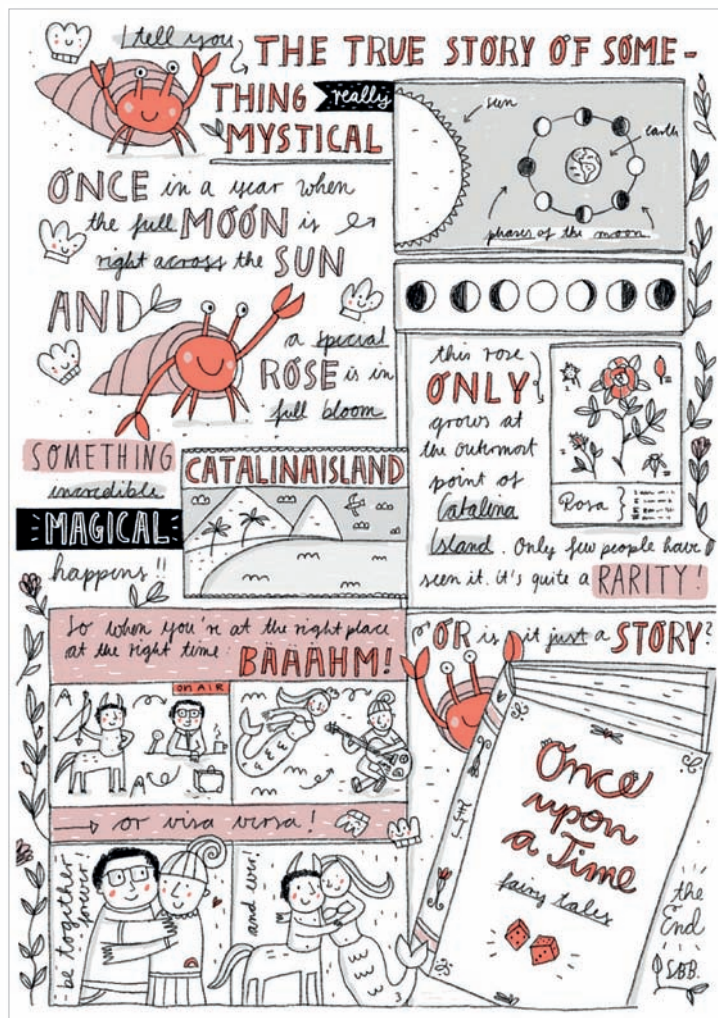 I tell you
THE TRUE STORY OF SOME-
THING really
MYSTICAL
sun
earth
phases of the moon
ONCE in a year when
the full MOON is
right across the SUN
AND
a special
ROSE is in
full bloom
this rose
ONLY
grows at
the outermost
point of
Catalina
Island. Only few people have
seen it. it's quite a RARITY!
Rosa
SOMETHING
incredible
MAGICAL
happens!!
CATALINAISLAND
So when you're at the right place
at the right time: BÄÄÄHM!
ON AIR
or visa versa!
be together
forever!
and ever!
3
OR is it just a STORY?
Once
upon
a Time
fairy tales
the
End
SBB.